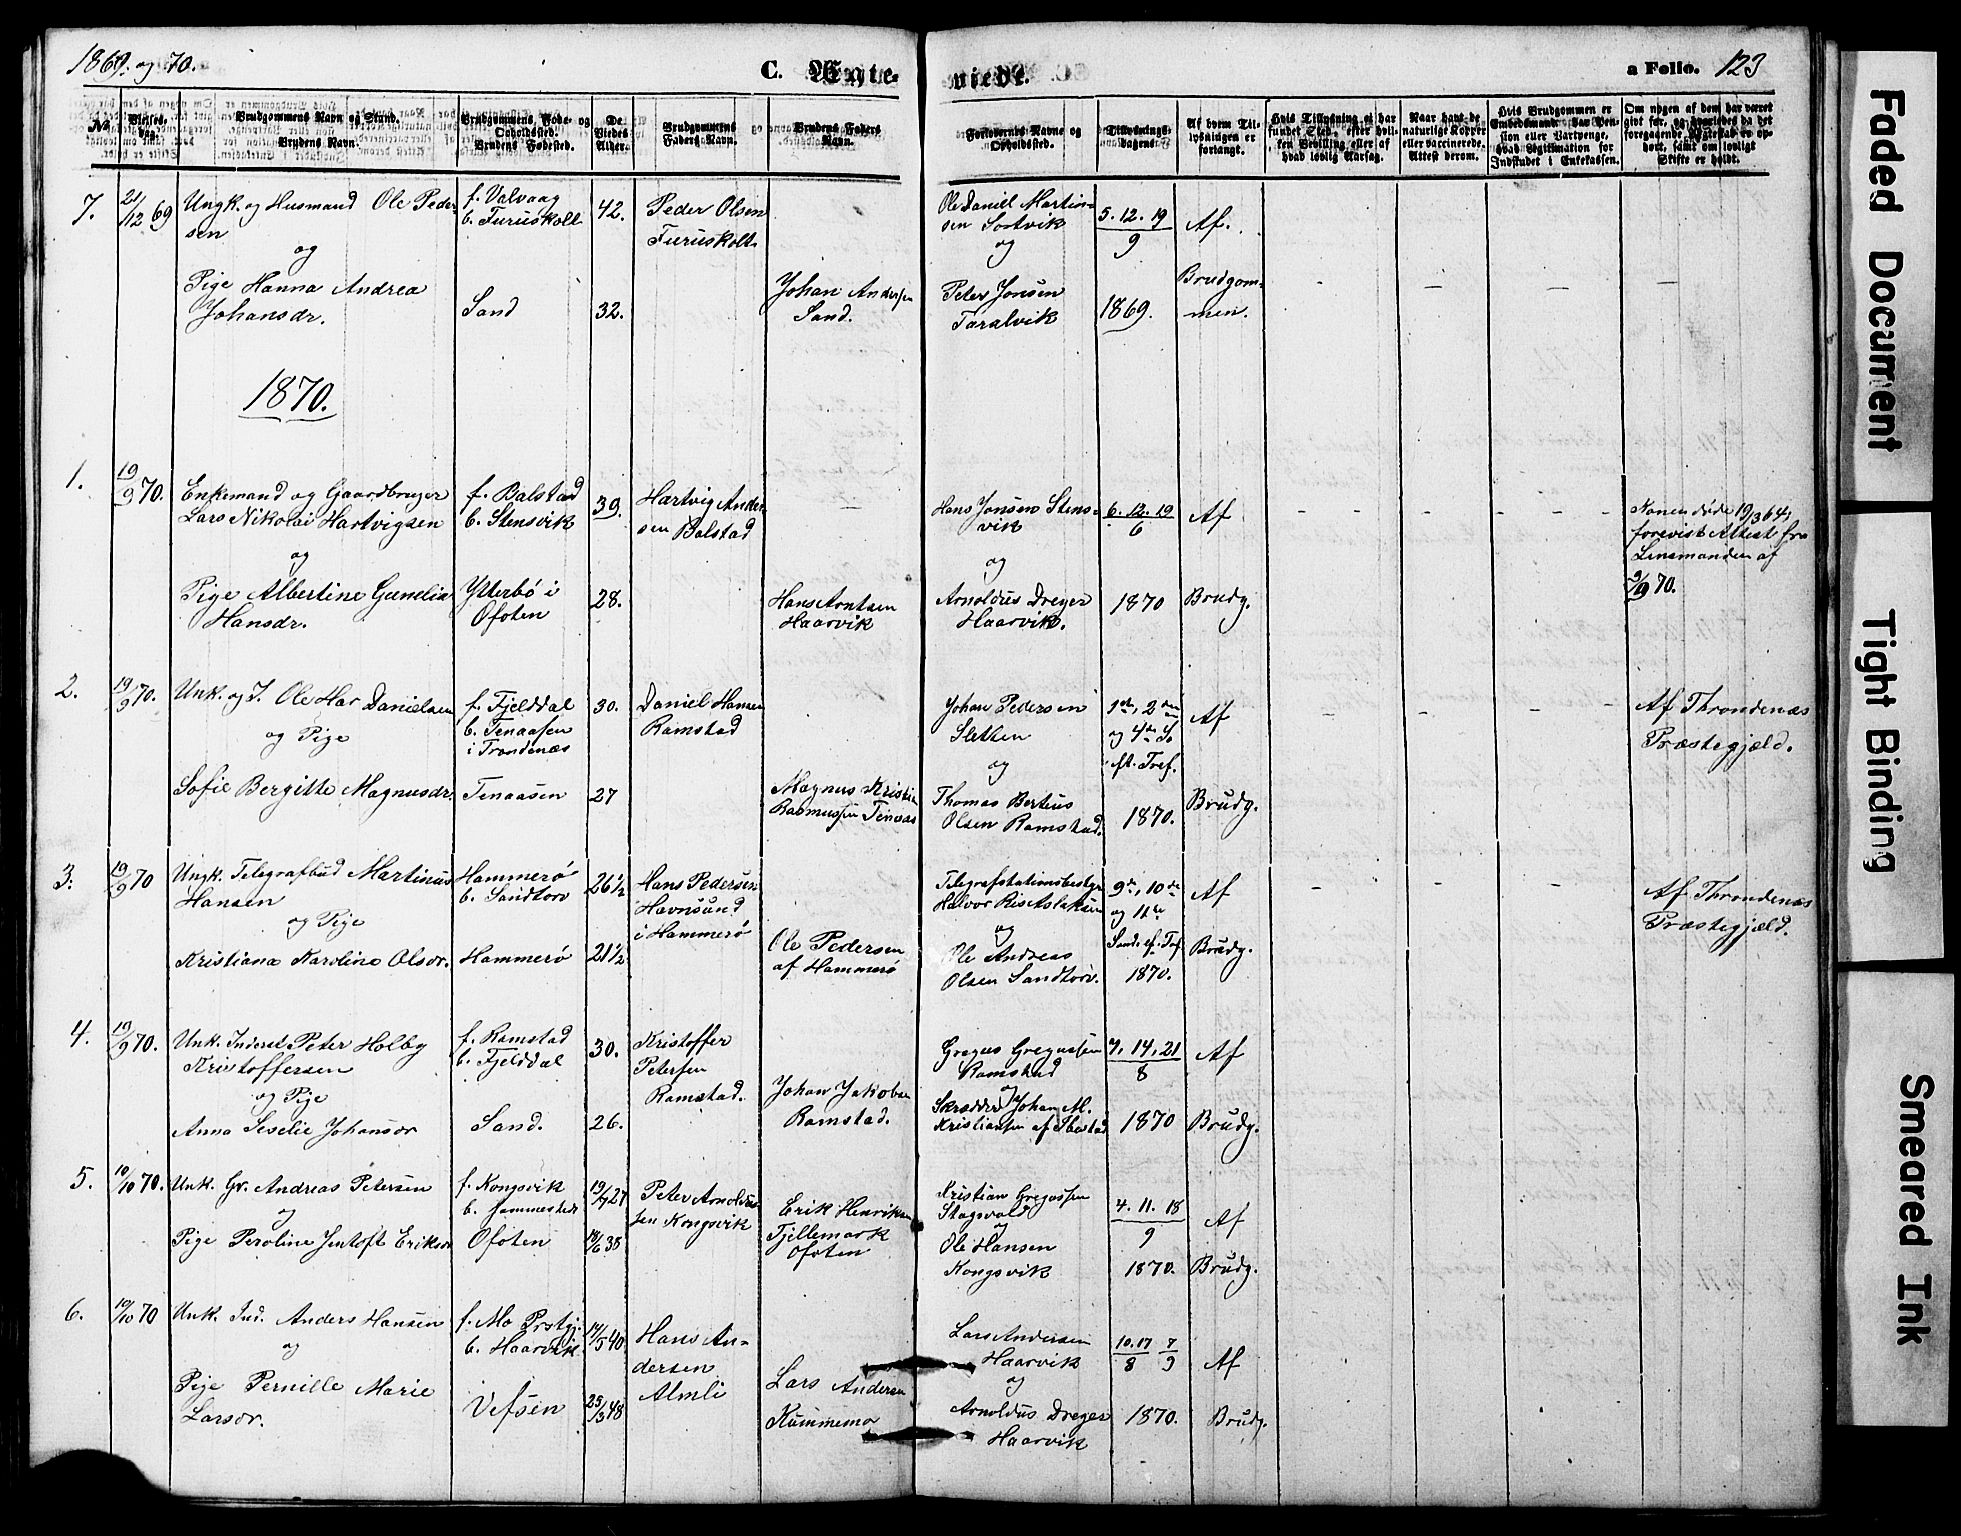 1869. og 70.
C. Ægte-
viede.
a Folio. 123
No.
Vielses-
dag.
Brudgommens Navn og Stand.
Brudens Navn.
Brudgommens Føde- og
Opholdssted.
Brudens Fødested.
De
Viedes
Alder.
Brudgommens
Faders Navn.
Brudens Faders
Navn.
Forlovernes Navne og
Opholdssted.
Tillysnings-
dagene.
Af hvem Til-
lysningen er
forlangt.
Hvis Tillysning ei har
fundet Sted, efter hvil-
ken Bevilling eller af
hvad lovlig Aarsag.
Naar havt de
naturlige Kopper
eller vaccinerede.
Attest derom.
Hvis Brudgommen er
Embedsmand, har Pen-
sion eller Vartpenge,
hvad Legitimation for
Indskudet i Enkekassen.
Om nogen af dem har været
gift før, og hvorledes da det
foregaaende Ægteskab er op-
hørt, samt om lovligt
Skifte er holdt.
7.
21/12 69
Ungk. og Husmand Ole Peder-
sen
og
Pige Hanna Andrea
Johansdr.
f. Valvaag
b. Furuskolt
Sand
42.
32.
Peder Olsen
Furuskolt
Johan Andersen
Sand.
Ole Daniel Martin-
sen Sortvik
og
Peter Jonsen
Taralvik
5. 12. 19
9
1869.
Af.
Brudgom-
men.
1870.
1.
19/9 70.
Enkemand og Gaardbruger
Lars Nikolai Hartvigsen
og
Pige Albertine Gunelia
Hansdr.
f. Balstad
b. Stensvik
Ytterbø i
Ofoten
39.
28.
Hartvig Ander-
sen Balstad
Hans Arntsen
Haarvik
Hans Jonsen Stens-
vik
og
Arnoldus Dreyer
Haarvik.
6. 12. 19
6
1870
Af
Brudg.
Konen døde 19/3 64,
forevist Attest fra
Lensmanden af
9/9 70.
2.
19/9 70.
Unk. og I. Ole Har Danielsen
og Pige
Sofie Bergitte Magnusdr.
f. Fjelddal
b. Tenaasen
i Trondenæs
Tenaasen
30.
27
Daniel Hansen
Ramstad
Magnus Kristian
Rasmussen Tenaas
Johan Pedersen
Sletten
og
Thomas Bertius
Olsen Ramstad.
1ste, 2den
og 4de S.
eft. Tref.
1870.
Af
Brudg.
Af Throndenæs
Præstegjæld.
3.
19/9 70
Ungk. Telegrafbud Martinus
Hansen
og Pige
Kristiana Karoline Olsdr.
Hammerø
b. Sandtorv
Hammerø
26 1/2
21 1/2
Hans Pedersen
Havnsund
i Hammerø
Ole Pedersen
af Hammerø
Telegrafstationsbestyr
Halvor Aslaksen
og
Ole Andreas
Olsen Sandtorv.
9de, 10de
og 11te
Sønd. ef. Tref.
1870.
Af
Brudg.
Af Throndenæs
Præstegjæld.
4.
19/9 70.
Unk. Inderst Peter Holby
Kristoffersen
og Pige
Anna Seselie Johansdr
f. Ramstad
b. Fjelddal
Sand.
30.
26.
Kristoffer
Petersen
Ramstad.
Johan Jakobsen
Ramstad.
Gregus Gregussen
Ramstad
og
Skrædder Johan M.
Kristiansen af Ibestad
7. 14. 21
8
1870
Af
Brudg.
5.
10/10 70.
Unk. Gr. Andreas Petersen
og
Pige Peroline Jentoft Eriksdr
f. Kongsvik
b. Hammestad
Ofoten
19/7 27
18/6 35
Peter Arnoldus-
sen Kongsvik
Erik Henriksen
Tjellemark
Ofoten
Kristian Gregussen
Stagsvold
og
Ole Hansen
Kongsvik
4. 11. 18
9
1870.
Af
Brudg.
6.
10/10 70
Unk. Ind. Anders Hansen
og
Pige Pernille Marie
Larsdr.
f. Mo Prstgj.
b. Haarvik
Vefsen
14/5 40
25/3 48
Hans An-
dersen
Almli
Lars Andersen
Kummemo
Lars Andersen
Haarvik
og
Arnoldus Dreyer
Haarvik
10. 17 7
8 9
1870.
Af
Brudg.
Faded Document
Tight Binding
Smeared Ink